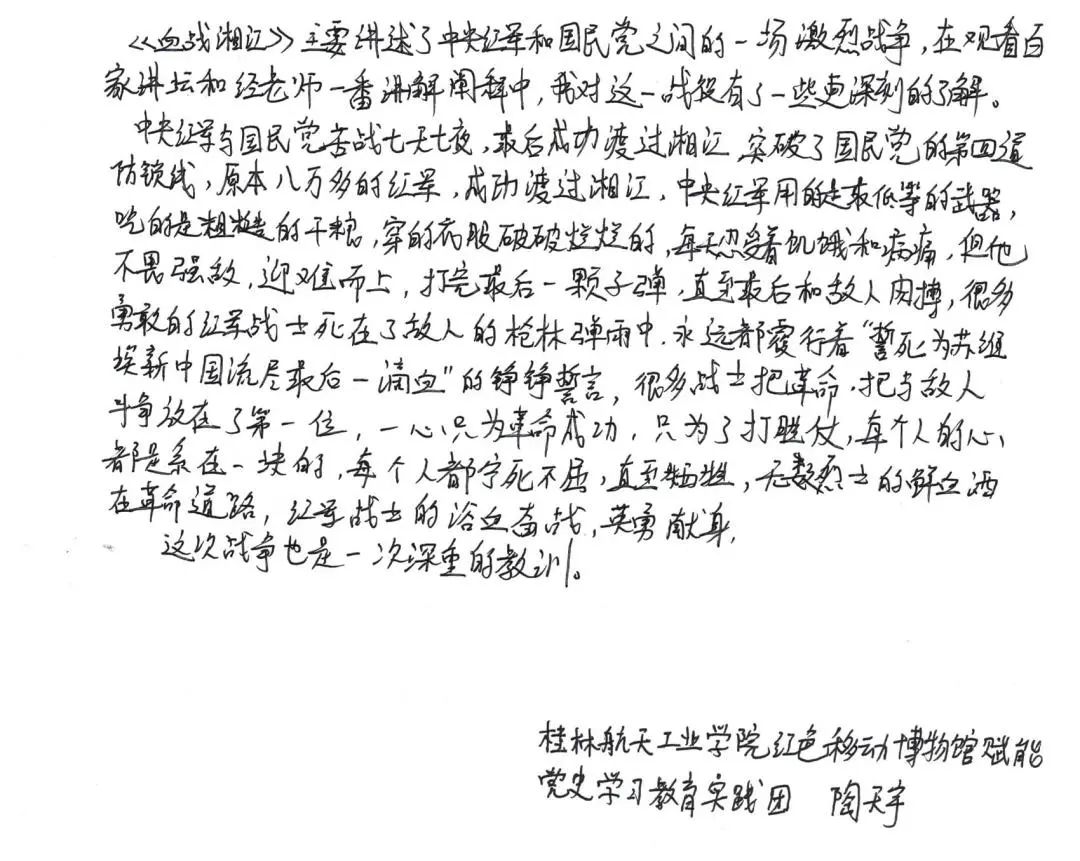 《血战湘江》主要讲述了中央红军和国民党之间的一场激烈战争,在观看百
家讲坛和经老师一番讲解阐释中,我对这一战役有了一些更深刻的了解。
中央红军与国民党苦战七天七夜,最后成功渡过湘江,突破了国民党的第四道
防锁线,原本八万多的红军,成功渡过湘江,中央红军用的是最低等的武器,
吃的是粗糙的干粮,穿的衣服破破烂烂的,每天忍受着饥饿和病痛,但他
不畏强敌,迎难而上,打完最后一颗子弹,直至最后和敌人肉搏,很多
勇敢的红军战士死在了敌人的枪林弹雨中,永远都履行着“誓死为苏维
埃新中国流尽最后一滴血”的铮铮誓言,很多战士把革命,把与敌人
斗争放在了第一位,一心只为革命成功,只为了打胜仗,每个人的心
都是系在一块的,每个人都宁死不屈,直至牺牲,无数烈士的鲜血洒
在革命道路,红军战士的浴血奋战,英勇献身,
这次战争也是一次深重的教训。
桂林航天工业学院红色移动博物馆赋能
党史学习教育实践团 陶天宇